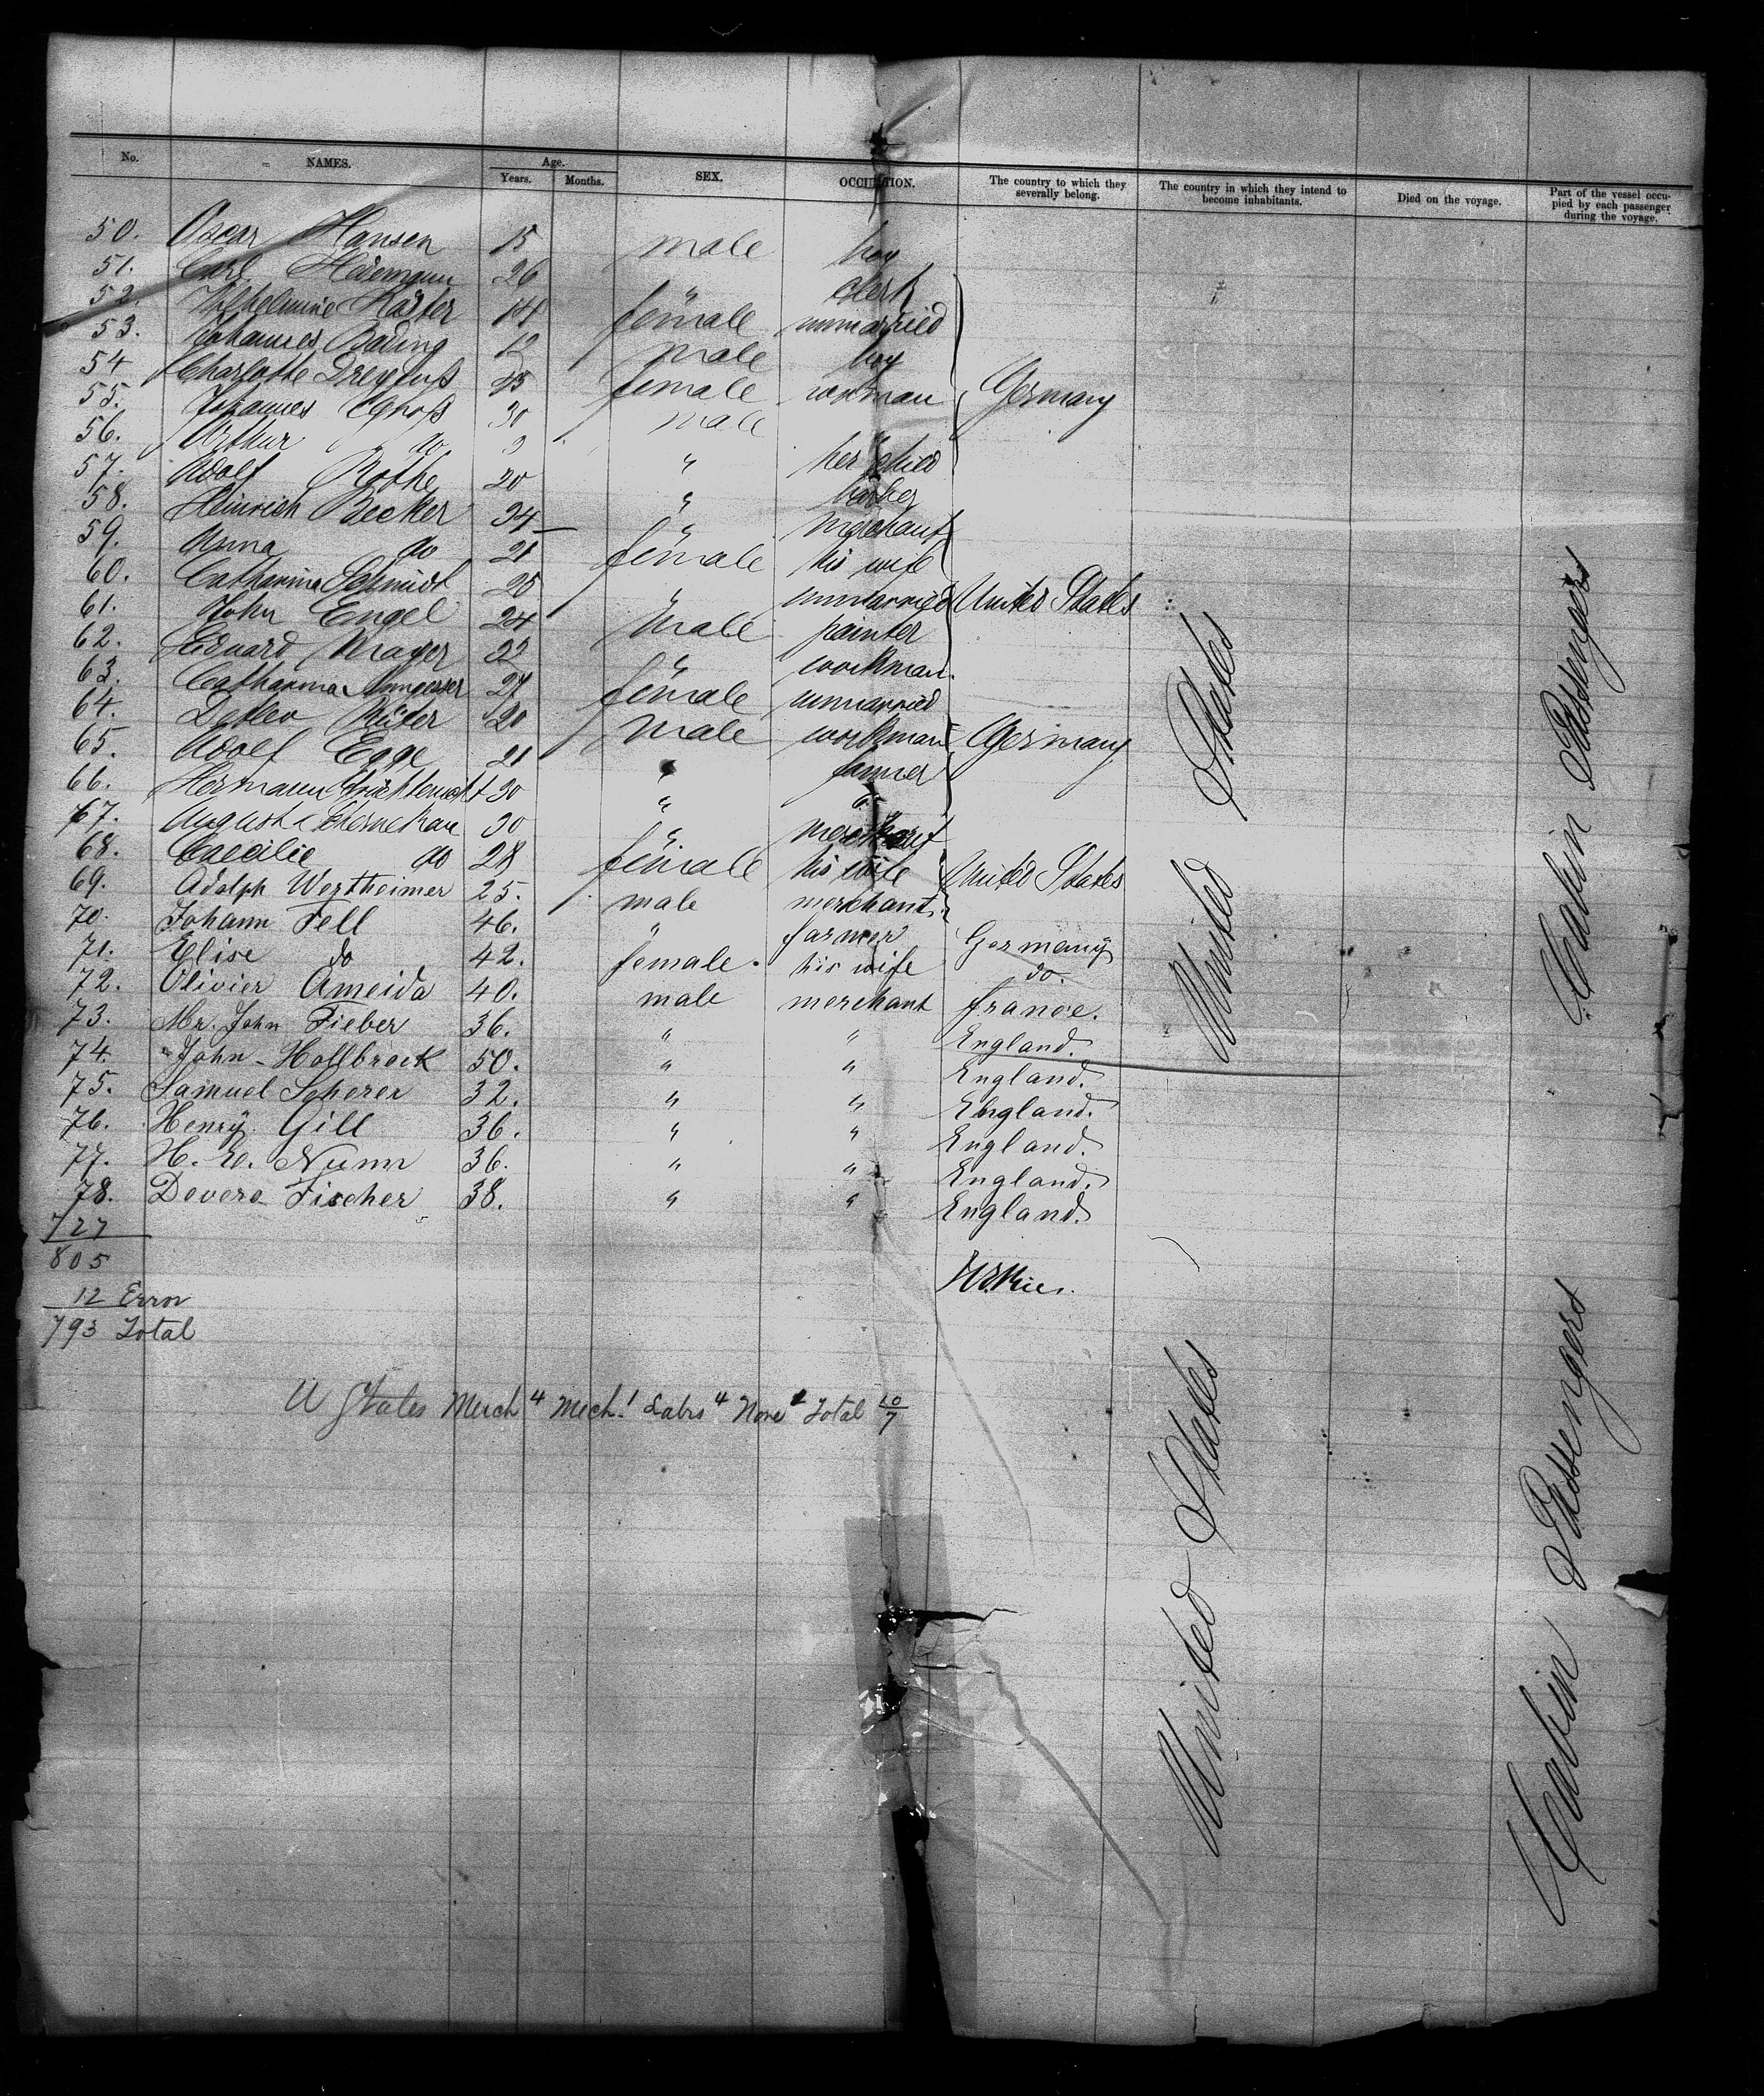 No. NAMES. Age. Years. Months. SEX. OCCUPATION. The country to which they severally belong. The country in which they intend to become inhabitants. Died on the voyage. Part of the vessel occupied by each passenger during the voyage.
50. Oscar Hansen 15 male boy
51. Carl Heidemann 26 " clerk
52. Wilhelmine 14 female unmarried
53. Johannes Bading 12 male boy
54 Charlotte Dreyfuß 45 female workman Germany
55. Johannes 30 male
56. Arthur do " her child
57. Adolf Rothe 20 " barber
58. Heinrich Becker 34 " merchant
59. Anna do 21 female his wife
60. Catharina Schmidt 25 " unmarried United States
61. John Engel 24 male painter
62. Eduard Mayer 22 " workman.
63. Catharina 27 female unmarried
64. Detlev 20 male workman Germany
65. Adolf Egge 21 " farmer
66. Hermann 30 " "
67. August 30 " merchant
68. Caecilie do 28 female his wife United States
69. Adolph Wertheimer 25. male merchant
70. Johann Fell 46. " farmer Germany
71. Elise do 42. female. his wife do.
72. Olivier Ameida 40. male merchant france.
73. Mr. John Fieber 36. " " England.
74. John Hollbrock 50. " " England.
75. Samuel Scherer 32. " " England.
76. Henry Gill 36. " " England.
77. H. E. Nunn 36. " " England.
78. Devere Fischer 38. " " England.
727
805
12 Error
793 Total
U States Merch 4 Mech. 1 Labrs 4 None 1 Total 10
7
United States
Cabin Passengers
United States
Cabin Passengers